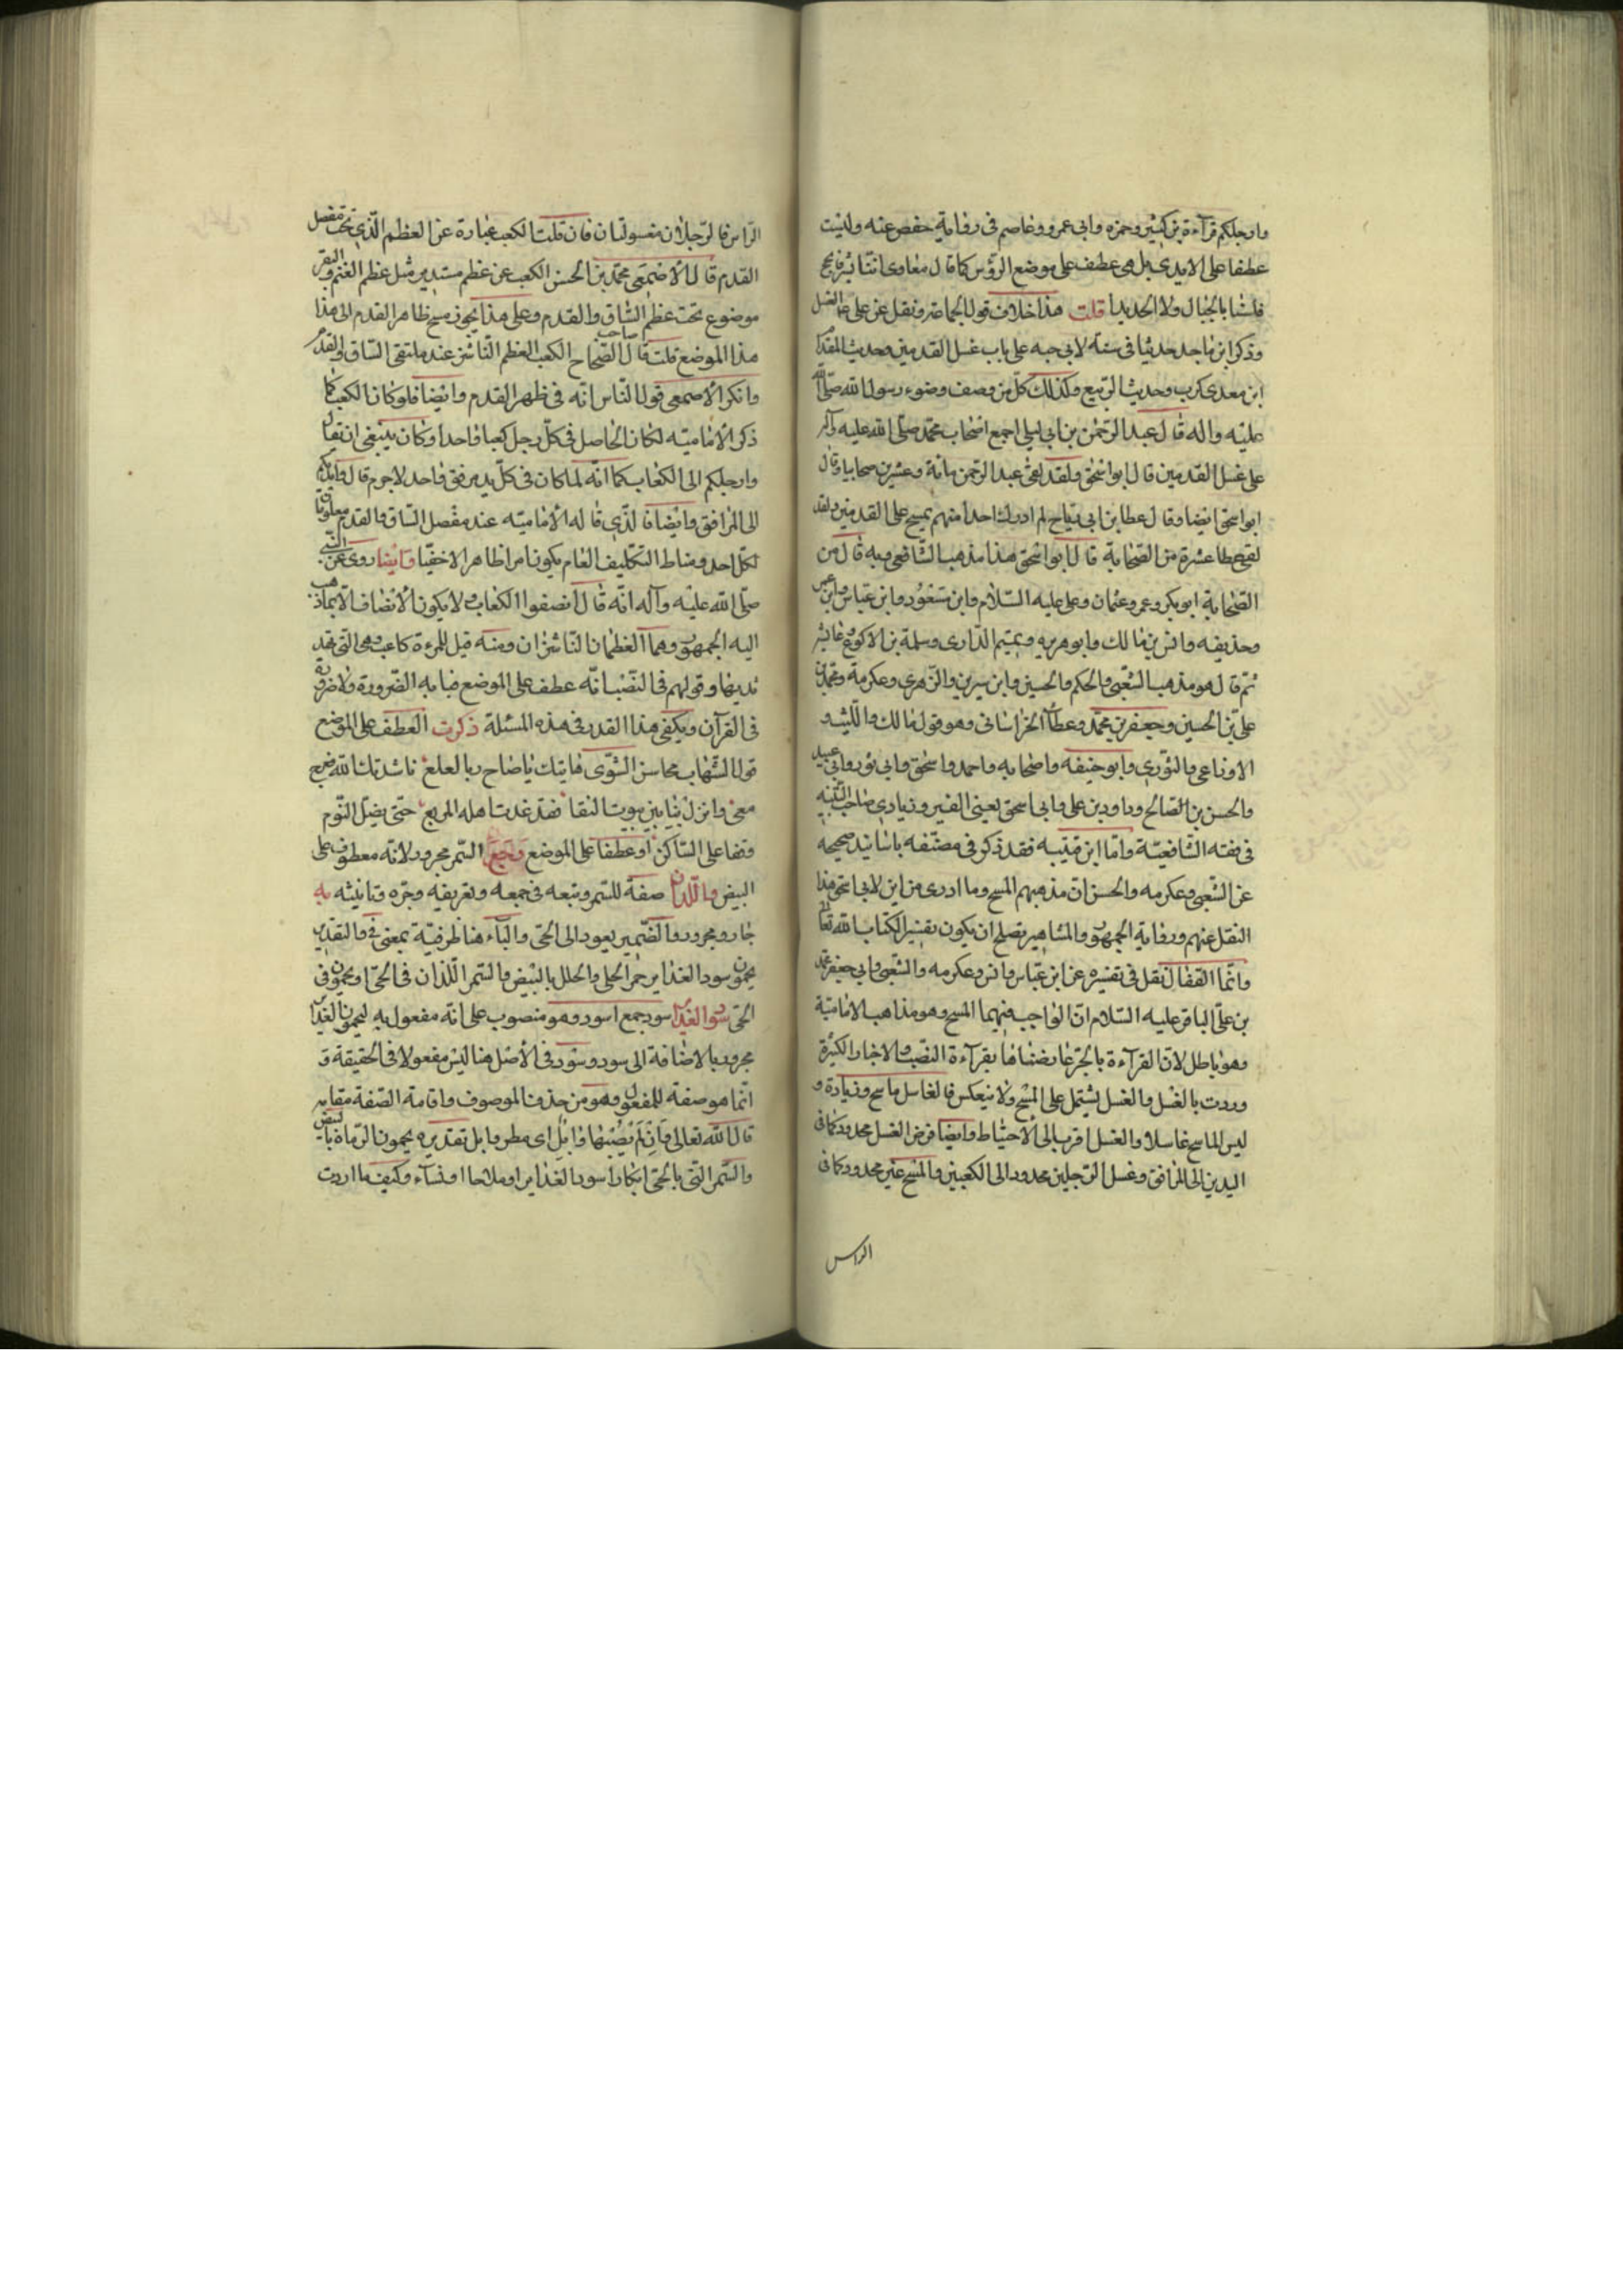 وارجلكم قرآءة بن كثير وحمزه وابى عمرو وعاصم فى رواية حفص عنه وليست
عطفا على الايدى بل هى عطف على موضع الرؤس كما قال معاوى اننا بشر فاسجح
فلسنا بالجبال ولا الحديدا قلت هذا خلاف قول الجماعة ونقل عن على عم الغسل
وذكر ابن ماجد حديثا فى سننه لابى حبه على باب غسل القدمين وحديث المقدام
ابن معدى كرب وحديث الربيع وكذلك كل من وصف وضوء رسول الله صلى الله
عليه واله قال عبد الرحمن بن ابى ليلى اجمع اصحاب محمد صلى الله عليه وآله
على غسل القدمين قال ابو اسحق ولقد لقى عبد الرحمن مائة وعشرين صحابيا وقال
ابو اسحق ايضا وقال عطا بن ابى رياح لم ادرك احدا منهم يمسح على القدمين ولقد
لقى عطا عشرة من الصحابة قال ابو اسحق هذا مذهب الشافعى وبه قال من
الصحابة ابو بكر وعمر وعثمان وعلى عليه السلام وابن مسعود وابن عباس وابن عمر
وحذيفه وانس بن مالك وابو هريره وتميم الدارى وسلمة بن الاكوع وعايشه
ثم قال هو مذهب الشعبى والحكم والحسين وابن سيرين والزهرى وعكرمة ومحمد بن
على بن الحسين وجعفر بن محمد وعطآء الخراسانى وهو قول مالك والليث و
الاوزاعى والثورى وابو حنيفه واصحابه واحمد واسحق وابى ثور وابى عبيد
والحسن بن الصالح وداود بن على وابى اسحق يعنى الفيروزيادى صاحب التنبيه
فى فقه الشافعية واما ابن قتيبه فقد ذكر فى مصنفه باسانيد صحيحه
عن الشعبى وعكرمه والحسن ان مذهبهم المسح وما ادرى من اين لابى اسحق هذا
النقل عنهم ورواية الجمهور والمشاهير يصلح ان يكون تفسيرا لكتاب الله تعالى
وانما القفال نقل فى تفسيره عن ابن عباس وانس وعكرمه والشعبى وابى جعفر محمد
بن على الباقر عليه السلام ان الواجب فيهما المسح وهو مذاهب الامامية
وهو باطل لان القرآءة بالجر عارضناها بقرآءة النصب والاخبار الكثيرة
وردت بالغسل والغسل يشتمل على المسح ولا ينعكس فالغاسل ماسح وزيادة و
ليس الماسح غاسلا والغسل اقرب الى الاحتياط وايضا فرض الغسل محدود كما فى
اليدين الى المرافق وغسل الرجلين محدود الى الكعبين والمسح غير محدود كما فى
الراس
الراس فالرجلان مغسولتان فان قلت الكعب عبارة عن العظم الذى تحت مفصل
القدم قال الاصمعى محمد بن الحسن الكعب عن عظم مستدير مثل عظم الغنم والبقر
موضوع تحت عظم الساق والقدم وعلى هذا يجوز مسح ظاهر القدم الى هذا
هذا الموضع قلت قال صاحب الصحاح الكعب العظم الناشز عند ملتقى الساق والقدم
وانكر الاصمعى قول الناس انه فى ظهر القدم وايضا فلو كان الكعب كما
ذكر الامامية لكان الحاصل فى كل رجل كعبا واحدا وكان ينبغى ان تقال
وارجلكم الى الكعاب كما انه لما كان فى كل يد مرفق واحد لاجرم قال وايديكم
الى المرافق وايضا فالذى قاله الامامية عند مفصل الساق والقدم معلومان
لكل احد ومناط التكاليف العام يكون امرا ظاهرا لا خفيا وايضا روى عن النبى
صلى الله عليه وآله انه قال انصفوا الكعاب ولا يكون الانصاف الا بما ذهب
اليه الجمهور وهما العظمان الناشزان ومنه قيل للمرءة كاعب وهى التى نهد
ثديها وقولهم فى النصب انه عطف على الموضع فبابه الضرورة ولا ضرورة
فى القرآن ويكفى هذا القدر فى هذه المسئلة ذكرت العطف على الموضع
قول الشهاب محاسن الشوى هاتيك ياصاح ربا لعلع ناشدتك الله فعرج
معى وانزل بنا بين بيوت النقا فقد غدت اهله المربع حتى يضل النوم
وقفا على الساكن او عطفا على الموضع السمر مجرور لانه معطوف على
البيض واللدان صفة للسمر وتبعه فى جمعه وتعريفه وجره وتانيثه به
جار ومجرور والضمير يعود الى الحى والبآء هنا ظرفية بمعنى فى والتقدير
يحمون سود الغداير حمر الحلى والحلل بالبيض والسمر اللذان فى الحى او يحمون فى
الحى سود الغداير سود جمع اسود وهو منصوب على انه مفعول به ليحمون الغداير
مجرور بالاضافة الى سود وسود فى الاصل هنا ليس مفعولا فى الحقيقة و
انما هو صفة للمفعول وهو من حذف الموصوف واقامة الصفة مقامه
قال الله تعالى فان لم يصبها وابل اى مطر وابل تقديره يحمون الرماة بالبيض
والسمر التى بالحى ابكارا سود الغداير او ملاحا او نسآء وكيف ما اردت